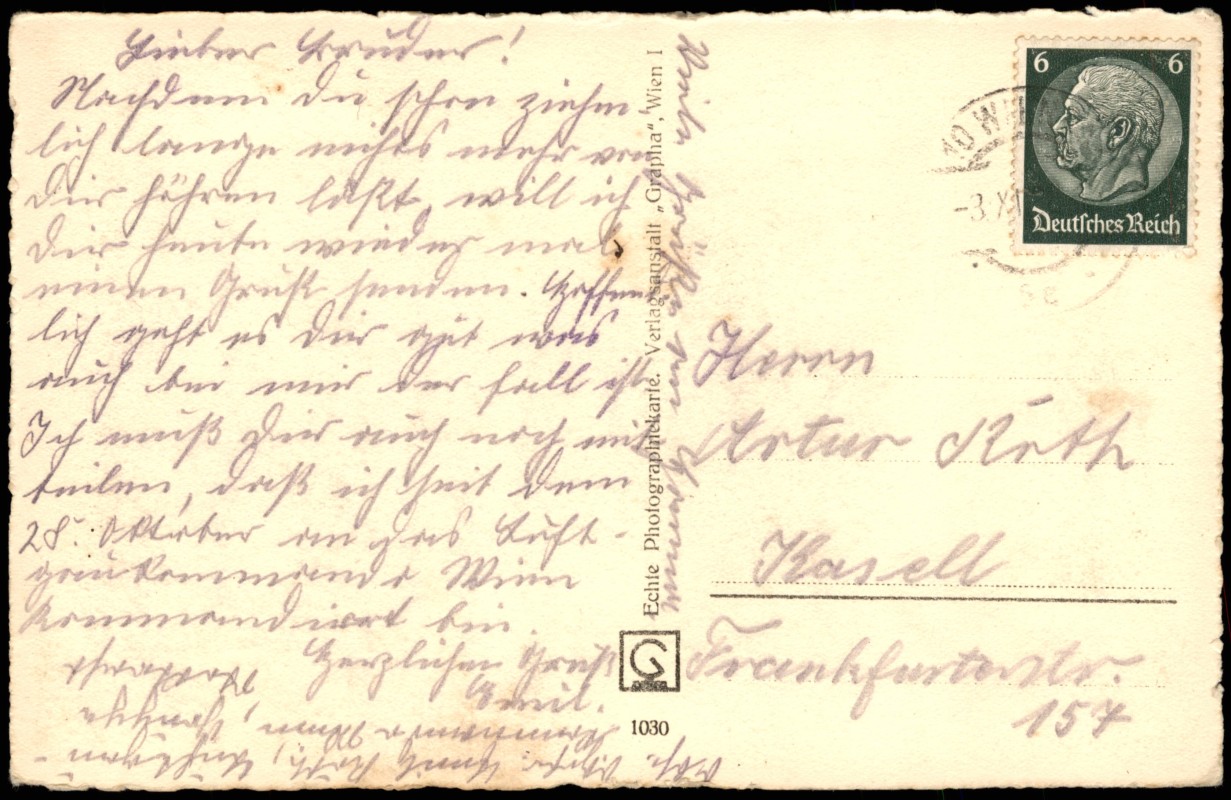 Lieber Bruder!
Nachdem Du schon ziehm
lich lange nichts mehr von
Dir höhren läßt, will ich
Dir heute wieder mal
einen Gruß senden. Hoffent
lich geht es dir gut was
auch bei mir der fall ist.
Ich muß Dir auch noch mit
teilen, daß ich seit dem
28. Oktober an das Luft-
gaukommando Wien
kommandiert bin.
Herzlichen Gruß
Emil.
Echte Photographiekarte. Verlagsanstalt „Grapha“, Wien I
G
1030
6 6
Deutsches Reich
10 W
-3. XI
Herrn
Artur Röth
Kasell
Frankfurterstr.
157